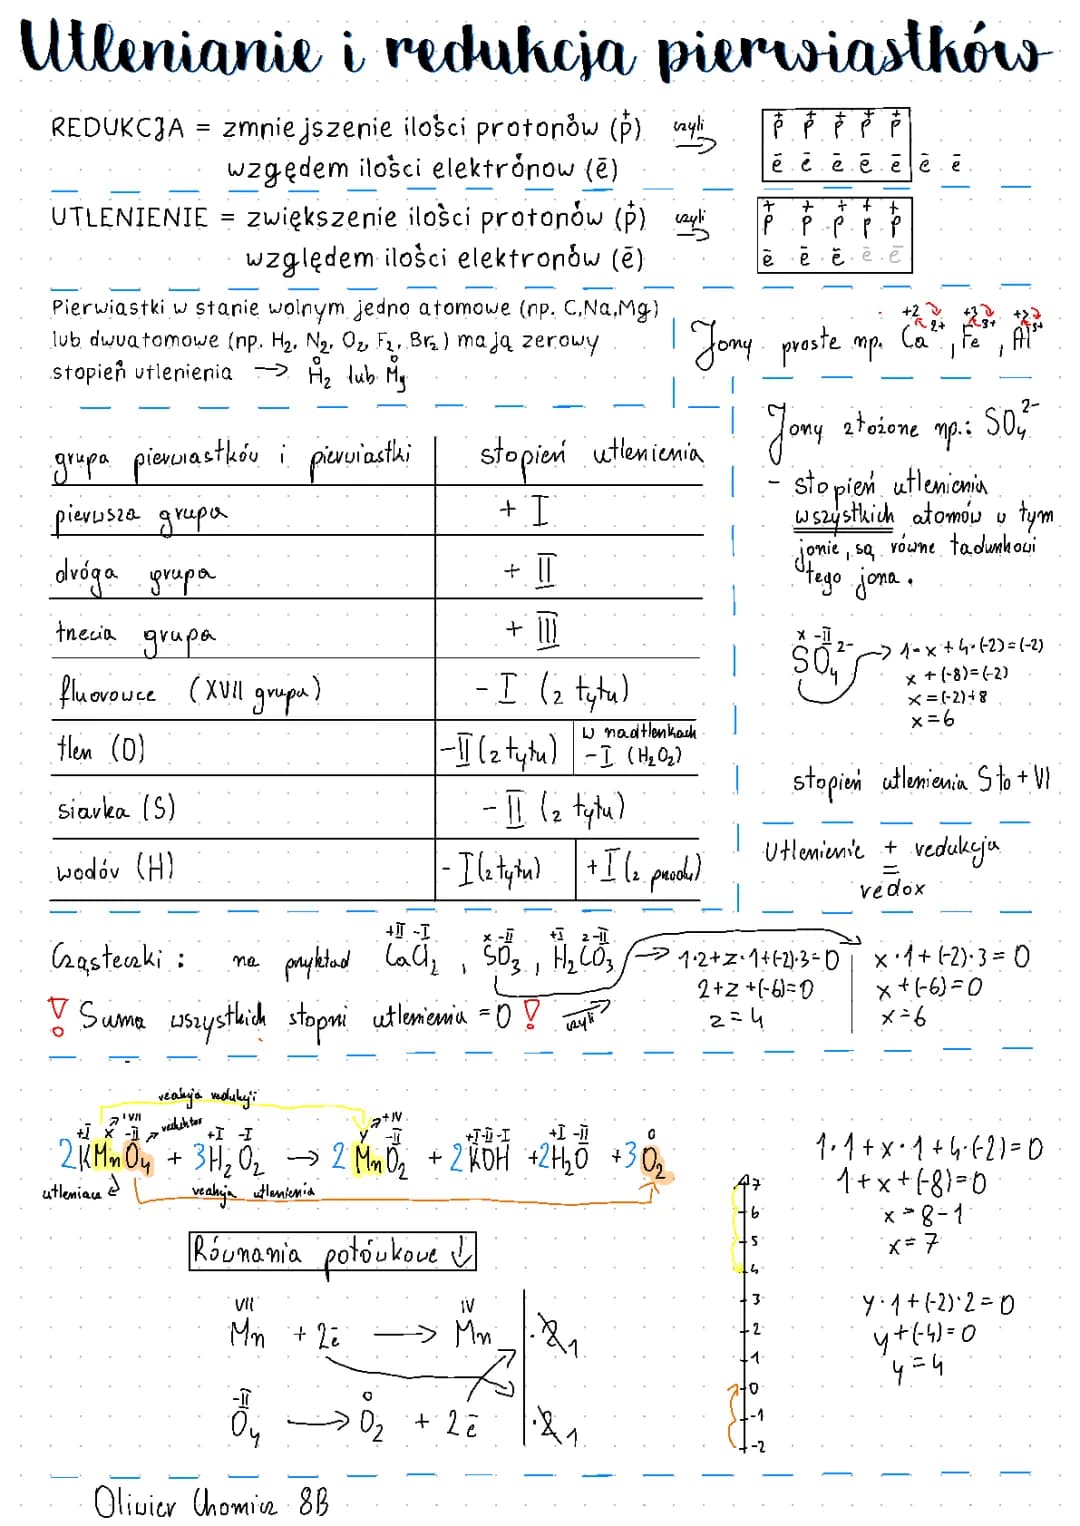 Utlenianie i redukcja pierwiastków
REDUKCJA = zmniejszenie ilości protonów (p⁺) czyli →
względem ilości elektrónow (ē)
p⁺ p⁺ p⁺ p⁺ p⁺
ē ē ē ē ē ē ē
UTLENIENIE = zwiększenie ilości protonów (p⁺) czyli →
względem ilości elektronów (ē)
p⁺ p⁺ p⁺ p⁺ p⁺
ē ē ē ē ē
Pierwiastki w stanie wolnym jedno atomowe (np. C,Na,Mg)
lub dwuatomowe (np. H₂, N₂, O₂, F₂, Br₂) mają zerowy
stopień utlenienia → H₂⁰ lub Mg⁰
Jony proste np. Ca²⁺, Fe³⁺, Al³⁺
+2 +3 +3
grupa pierwiastków i pierwiastki | stopień utlenienia
pierwsza grupa | + I
dróga grupa | + II
trzecia grupa | + III
fluorowce (XVII grupa) | - I (z tyłu)
tlen (O) | -II (z tyłu) | w nadtlenkach
-I (H₂O₂)
siarka (S) | - II (z tyłu)
wodór (H) | - I (z tyłu) | +I (z przodu)
Jony złożone np.: SO₄²⁻
- stopień utlenienia
wszystkich atomów w tym
jonie, są równe ładunkowi
tego jona.
x -II
SO₄²⁻ → 1·x + 4·(-2) = (-2)
x + (-8) = (-2)
x = (-2)+8
x = 6
stopień utlenienia S to + VI
Utlenienie + redukcja
=
redox
+II -I x -II +I z -II
Cząsteczki : na przykład CaCl₂ , SO₃ , H₂CO₃ → 1·2+z·1+(-2)·3=0 | x·1+(-2)·3=0
2+z+(-6)=0 | x+(-6)=0
z=4 | x=6
! Suma wszystkich stopni utlenienia = 0 ! czyli →
reakcja redukcji
VII reduktor +IV
+I x -II +I -I y -II +I -II -I +I -II 0
2KMnO₄ + 3H₂O₂ → 2MnO₂ + 2KOH + 2H₂O + 3O₂
utleniacz reakcja utlenienia
1·1+x·1+4·(-2)=0
1+x+(-8)=0
x=8-1
x=7
y·1+(-2)·2=0
y+(-4)=0
y=4
7
6
5
4
3
2
1
0
-1
-2
Równania połówkowe ↓
VII IV
Mn + 2ē → Mn | ·2 1
-II 0
O₄ → O₂ + 2ē | ·2 1
Oliwier Chomicz 8B